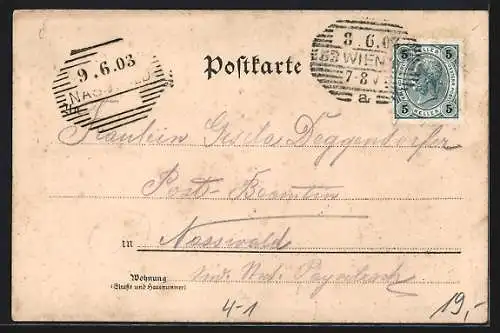 9.6.03
NASSWALD
Postkarte
8.6.03
WIEN
7-8V
a
HELLER
5 5
5 5
HELLER
Fräulein Gisela Deggendorfer
Post-Beamtin
in Nasswald
Wohnung
(Straße und Hausnummer)
Payerbach
4-1
19,-